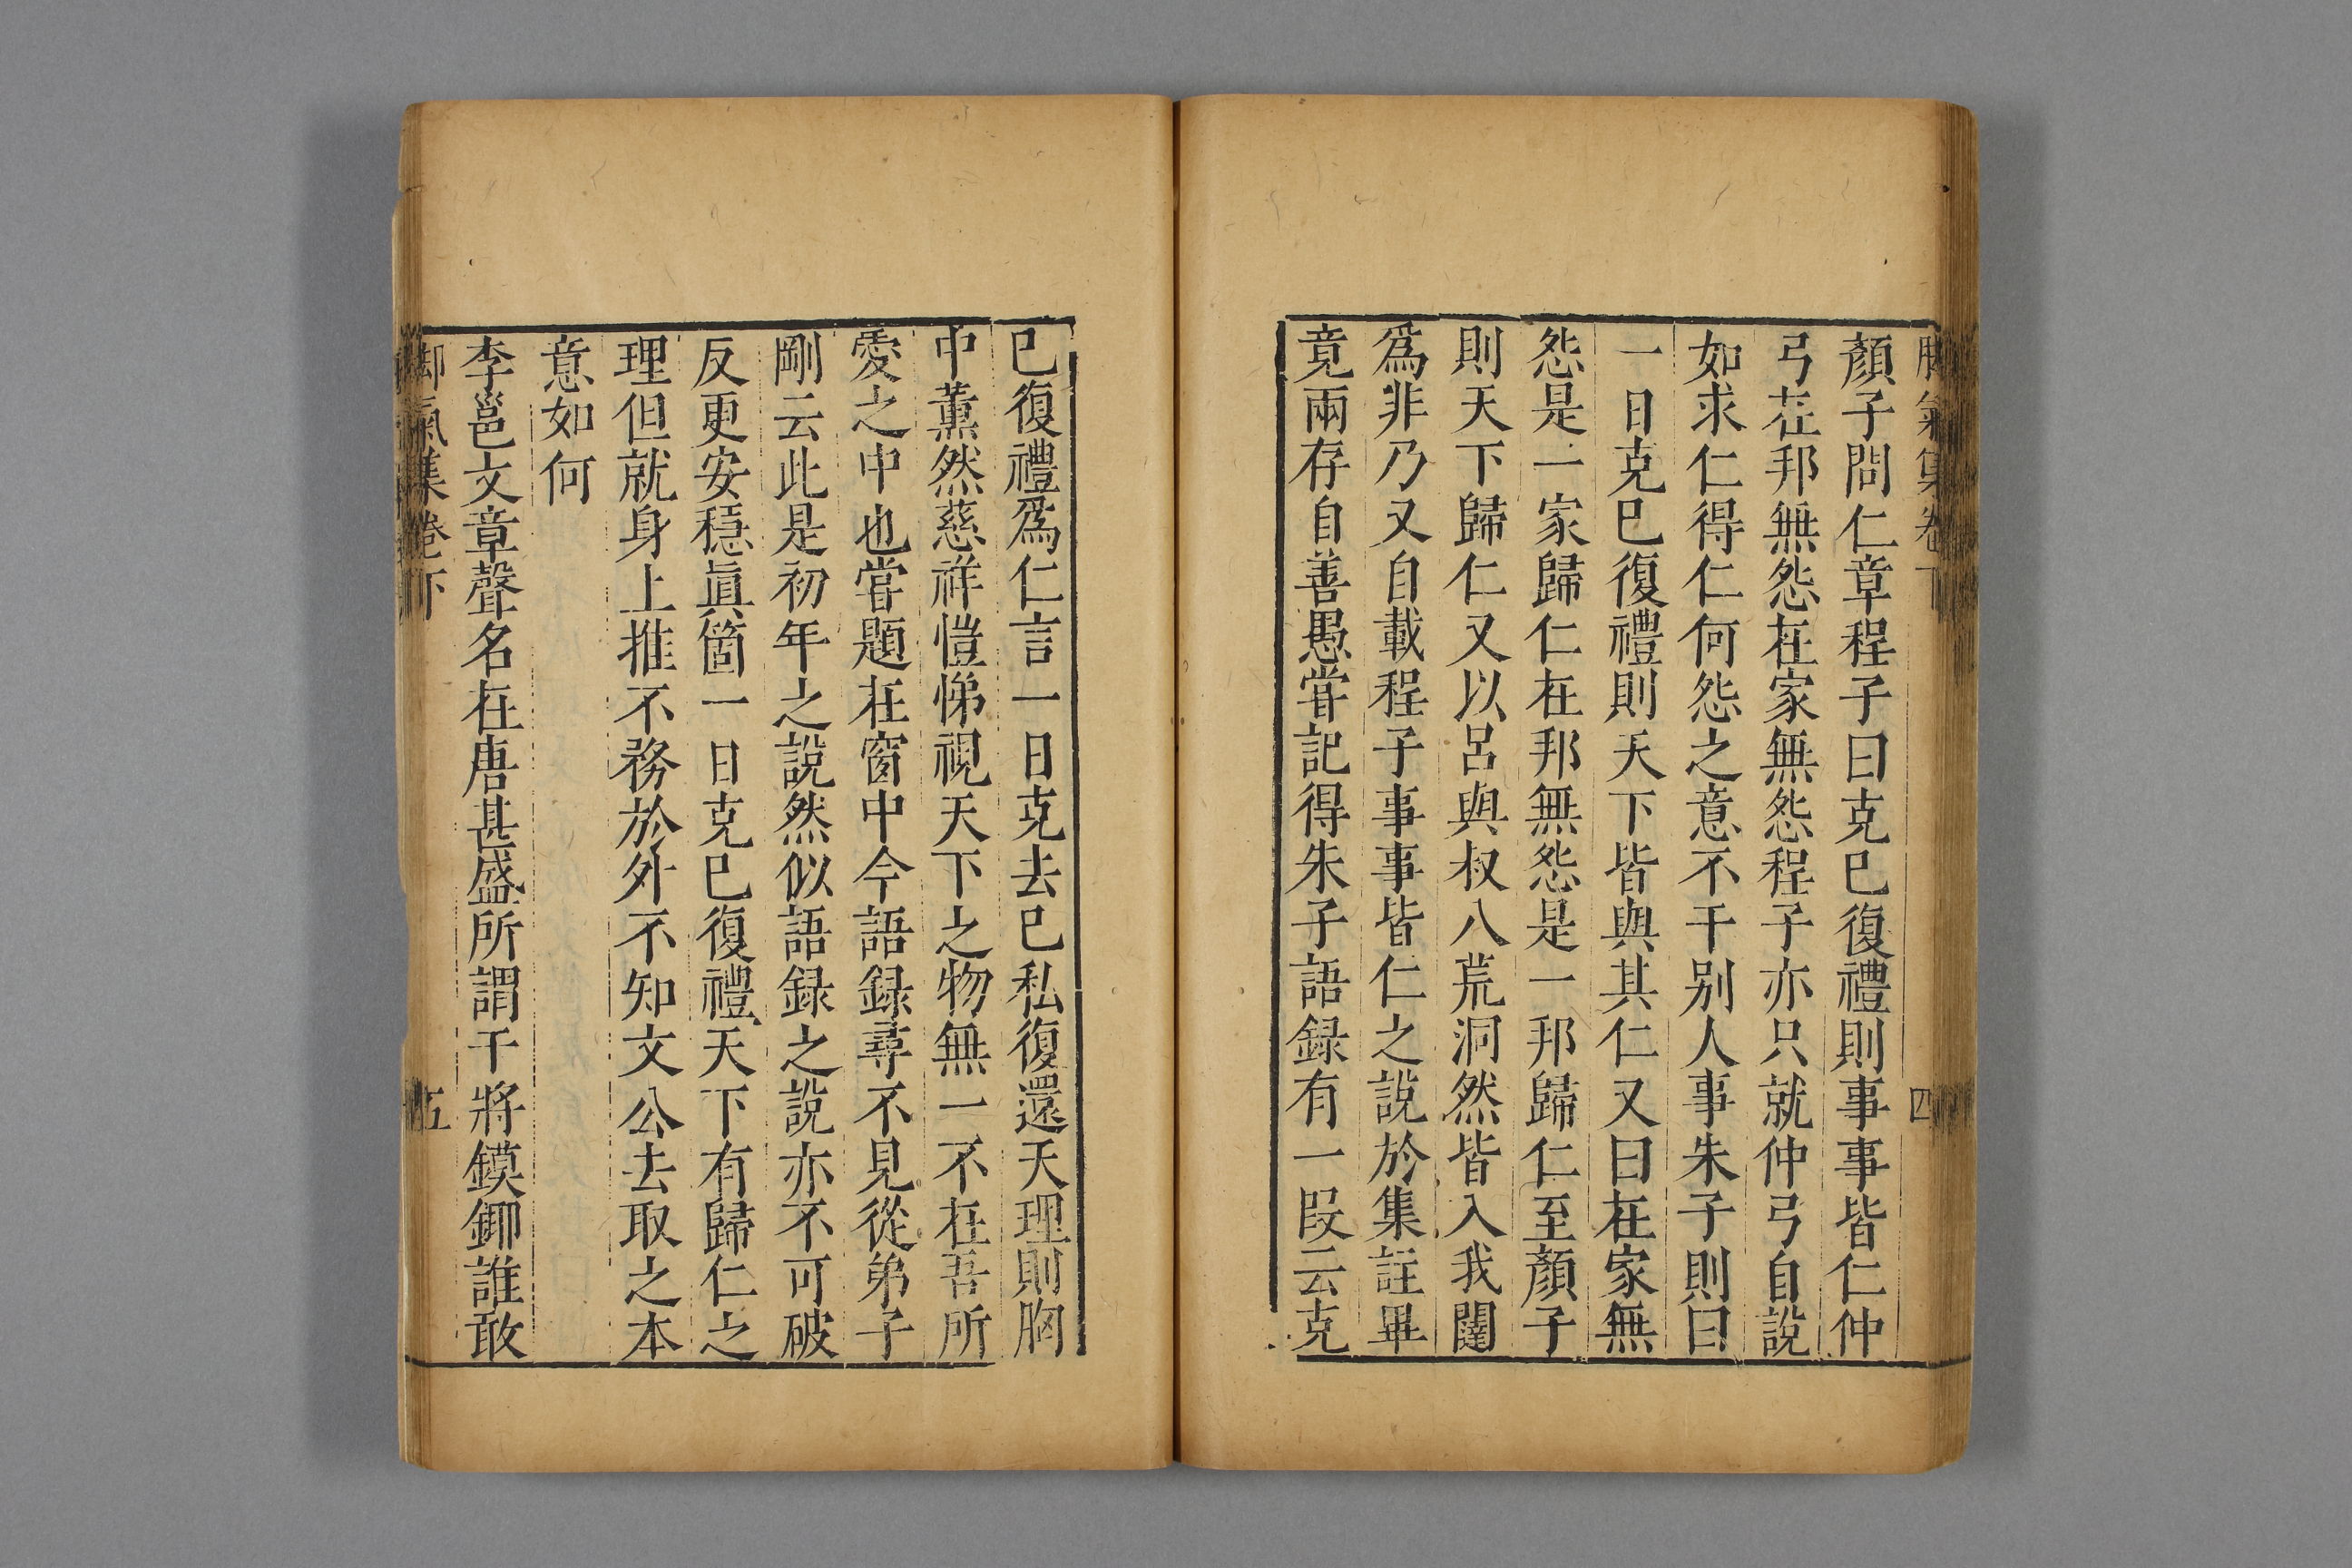 脚氣集卷下
四
顏子問仁章程子曰克巳復禮則事事皆仁仲
弓在邦無怨在家無怨程子亦只就仲弓自說
如求仁得仁何怨之意不干别人事朱子則曰
一日克巳復禮則天下皆與其仁又曰在家無
怨是一家歸仁在邦無怨是一邦歸仁至顏子
則天下歸仁又以呂與叔八荒洞然皆入我闥
爲非乃又自載程子事事皆仁之說於集註畢
竟兩存自善愚嘗記得朱子語録有一段云克
巳復禮爲仁言一日克去巳私復還天理則胸
中薰然慈祥愷悌視天下之物無一不在吾所
愛之中也嘗題在窗中今語録尋不見從弟子
剛云此是初年之說然似語録之說亦不可破
反更安穩眞箇一日克巳復禮天下有歸仁之
理但就身上推不務於外不知文公去取之本
意如何
李邕文章聲名在唐甚盛所謂干將鏌鎁誰敢
脚氣集卷下
五